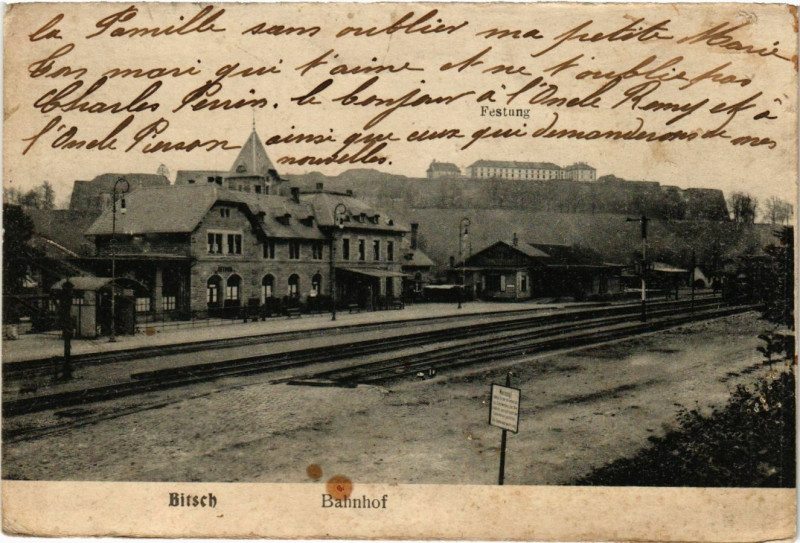 la Famille sans oublier ma petite Marie
Ton mari qui t'aime et ne t'oublie pas
Charles Perrin. le bonjour à l'Oncle Remy et à
Festung
l'Oncle Pierson ainsi que ceux qui demanderons de mes
nouvelles.
Bitsch Bahnhof